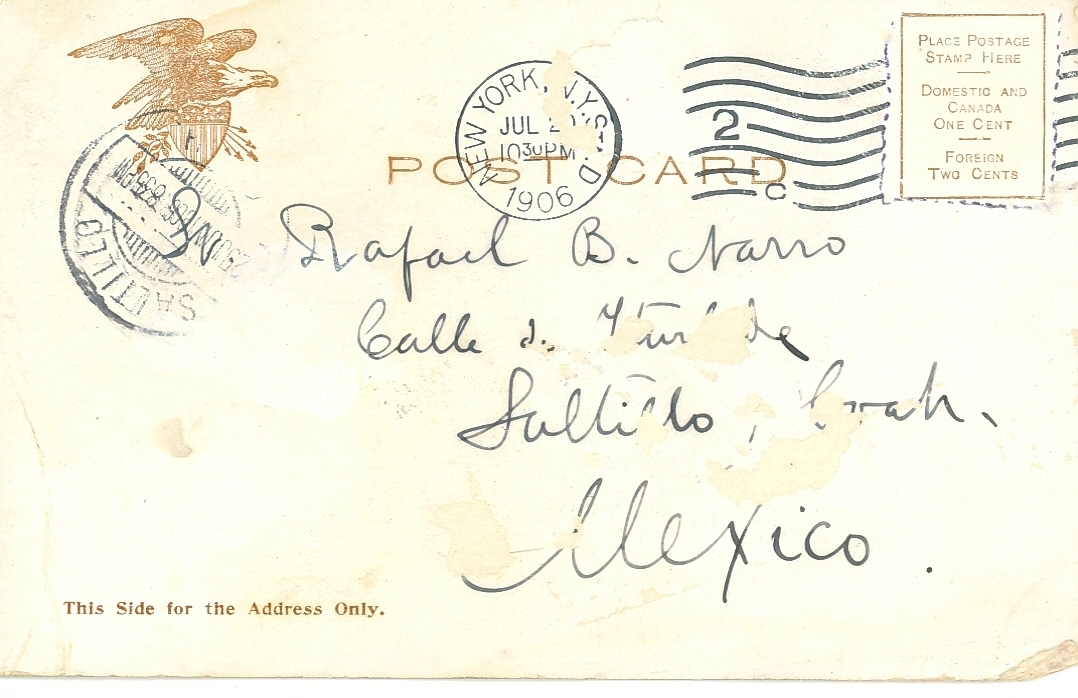 NEW YORK, N.Y. STA. D
JUL 2
10 30 PM
1906
2
C
PLACE POSTAGE
STAMP HERE
DOMESTIC AND
CANADA
ONE CENT
FOREIGN
TWO CENTS
POST CARD
SALTILLO
Rafael B. Narro
Calle de
Saltillo, Coah.
Mexico.
This Side for the Address Only.